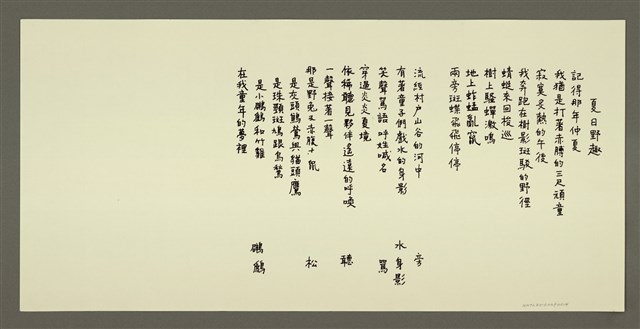 夏日野趣
記得那年仲夏
我猶是打著赤膊的三尺頑童
寂寞炙熱的午後
我奔跑在樹影斑駁的野徑
蜻蜓來回梭巡
樹上騷蟬激鳴
地上蚱蜢亂竄
兩旁斑蝶飛飛停停
流經村戶山谷的河中
有著童子們戲水的身影
笑聲罵語呼姓喊名
穿過炎炎夏境
依稀聽見夥伴遙遠的呼喚
一聲接著一聲
那是野兔及赤腹松鼠
是灰頭鷦鶯與貓頭鷹
是珠頸斑鳩跟烏鶖
是小鸊鷉和竹雞
在我童年的夢裡
旁
水身影
罵
聽
松
鸊鷉